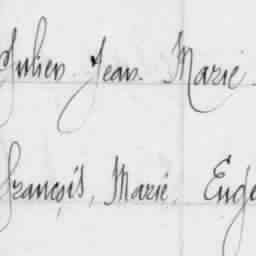 Julien Jean. Marie
François, Marie. Eugé